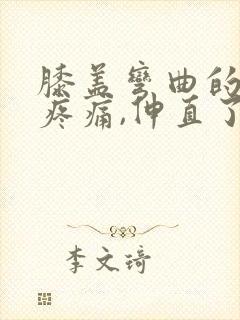 膝盖弯曲的
疼痛,伸直了
李文琦